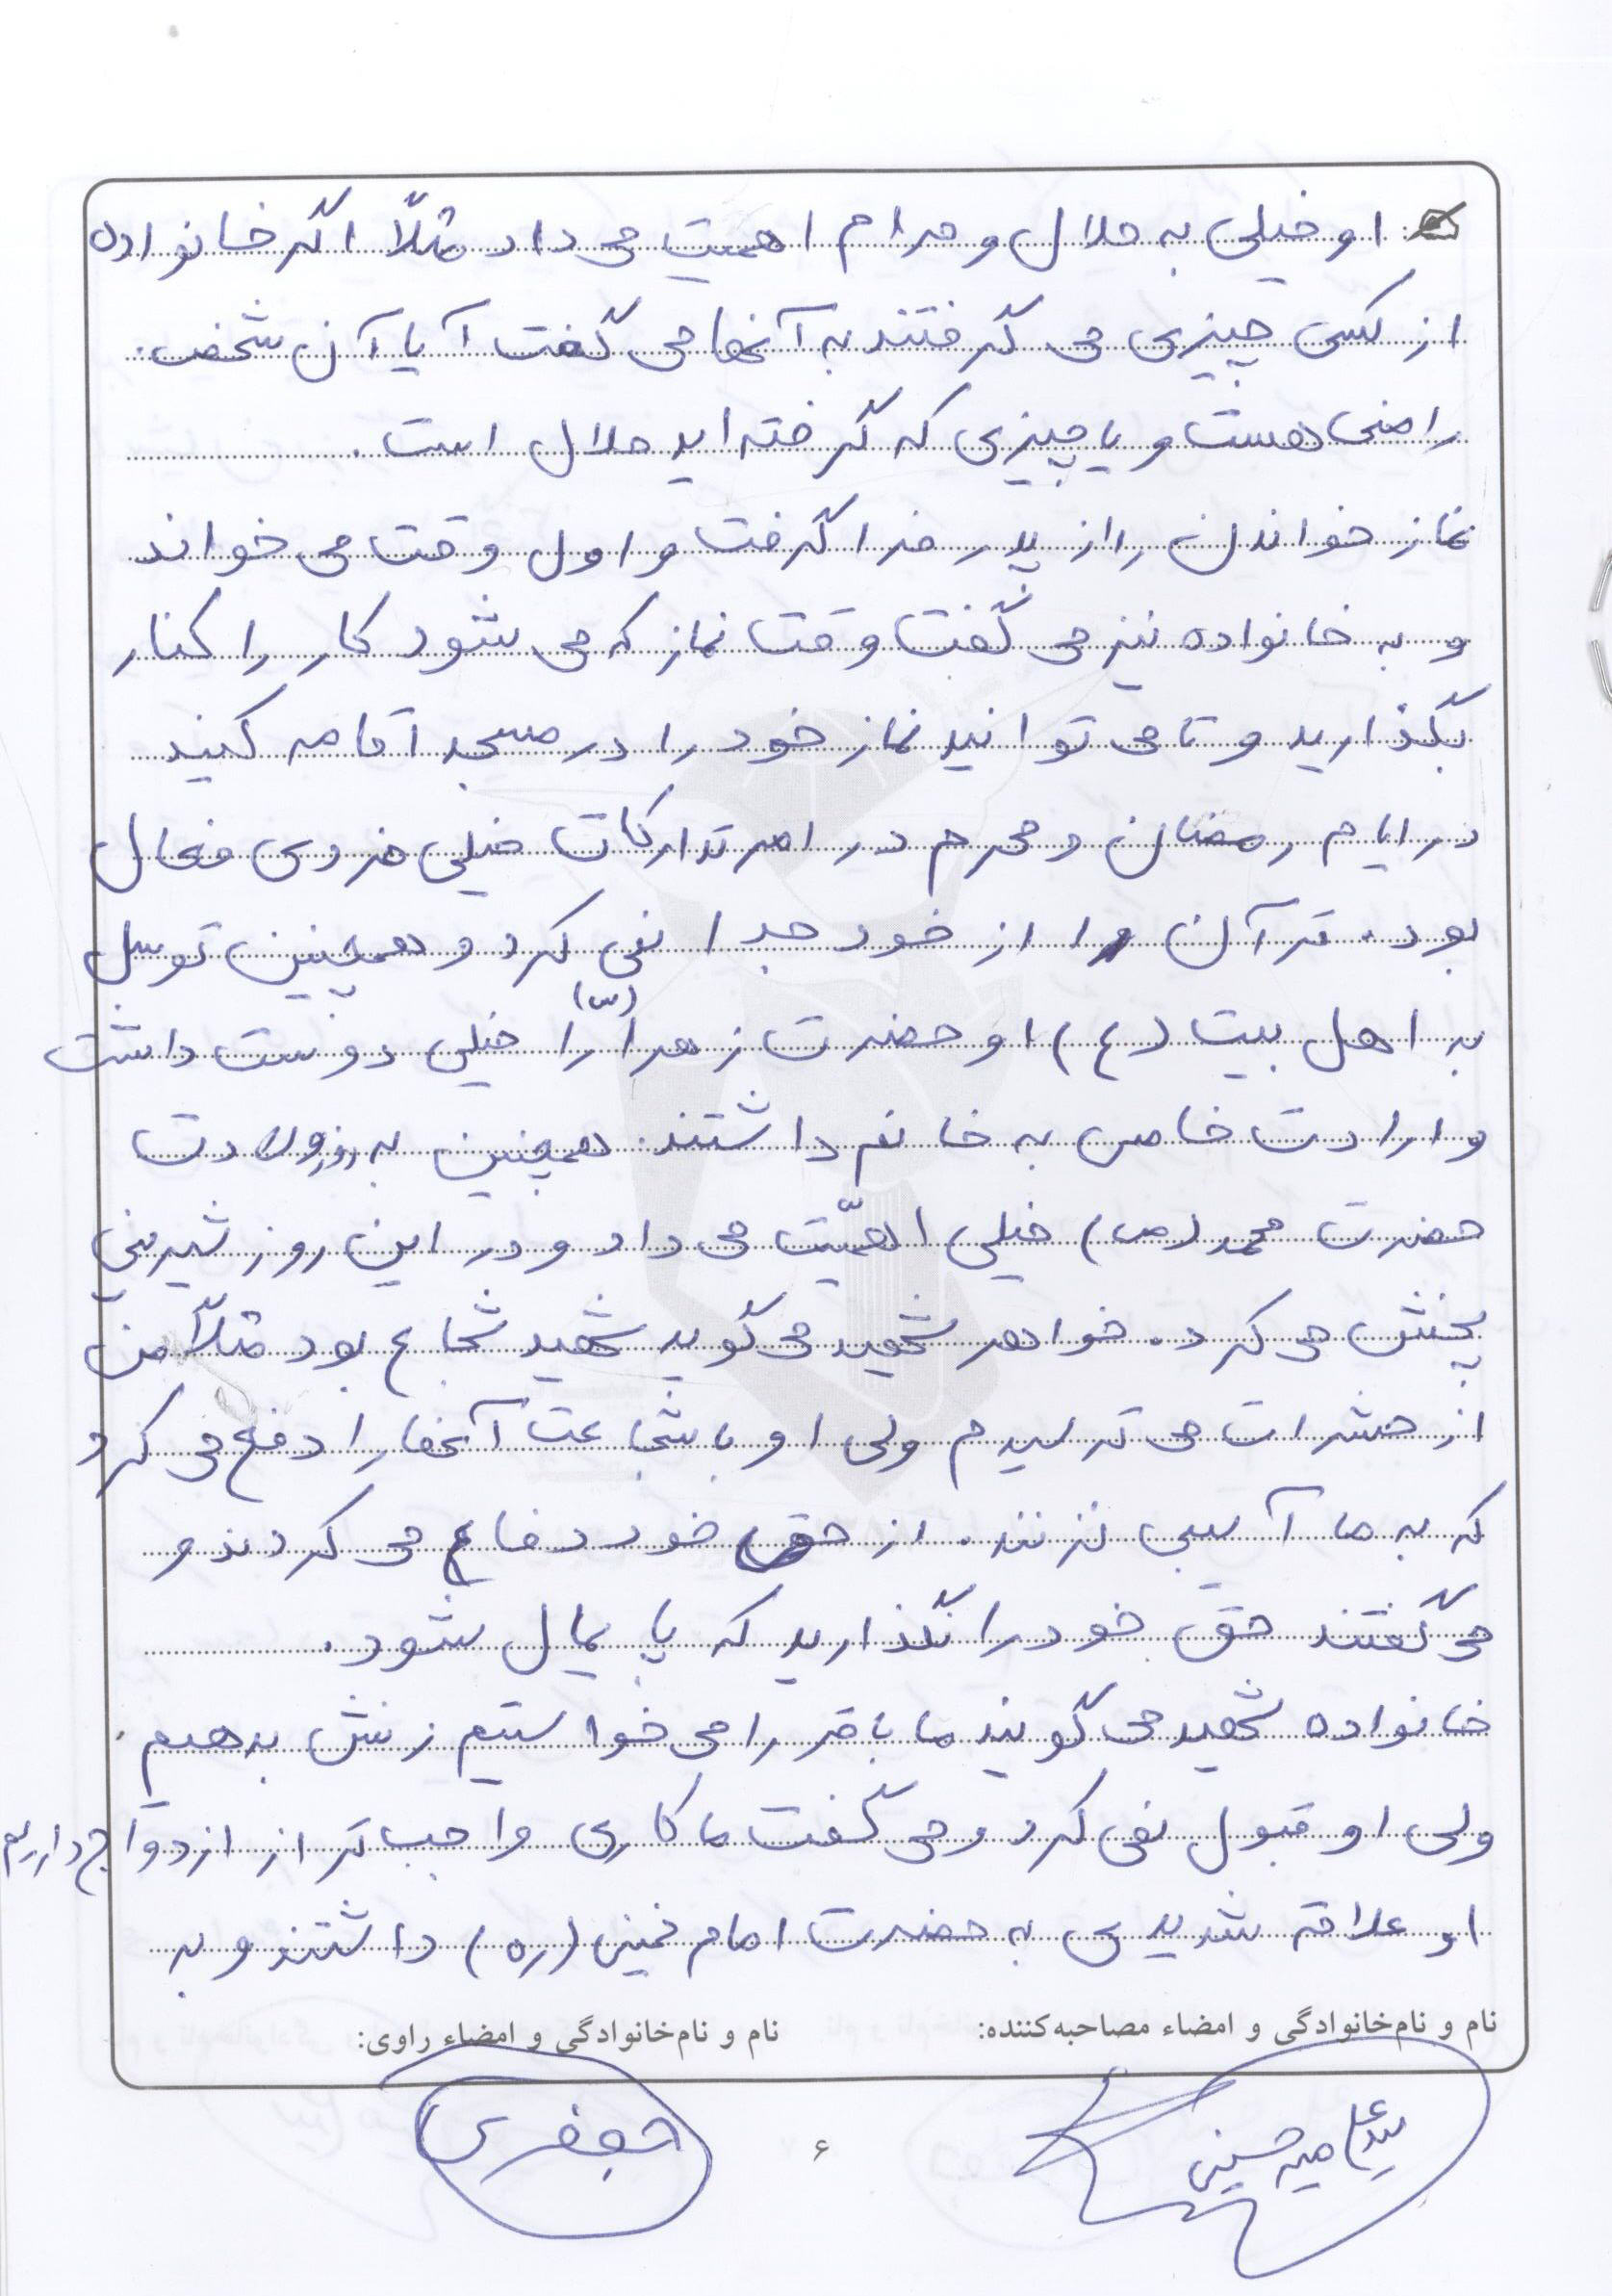 او خیلی به حلال و حرام اهمیت می داد مثلاً اگر خانواده
از کسی چیزی می گرفتند به آنها می گفت آیا آن شخص
راضی هست و یا چیزی که گرفته اید حلال است .
نماز خواندن را از پدر فرا گرفت و اول وقت می خواند
و به خانواده نیز می گفت وقت نماز که می شود کار را کنار
بگذارید و تا می توانید نماز خود را در مسجد آقامه کنید
در ایام رمضان و محرم در امر تدارکات خیلی فردی فعال
بود . قرآن را از خود جدا نمی کرد و همچنین توسل
به اهل بیت (ع) او حضرت زهرا (س) را خیلی دوست داشت
و ارادت خاص به خانم داشتند . همچنین به روز ولادت
حضرت محمد (ص) خیلی اهمّیت می داد و در این روز شیرینی
پخش می کرد . خواهر شهید می گوید شهید شجاع بود مثلاً من
از حشرات می ترسیدم ولی او با شجاعت آنها را دفع می کرد
که به ما آسیبی نزنند . از حق خود دفاع می کردند و
می گفتند حق خود را نگذارید که پایمال شود .
خانواده شهید می گویند ما باقر را می خواستیم زنش بدهیم
ولی او قبول نمی کرد و می گفت ما کاری واجب تر از ازدواج داریم
او علاقه شدیدی به حضرت امام خمینی (ره) داشتند و به
نام و نام‌خانوادگی و امضاء مصاحبه‌کننده: نام و نام‌خانوادگی و امضاء راوی:
سید علی میرحسینی جعفری
۶